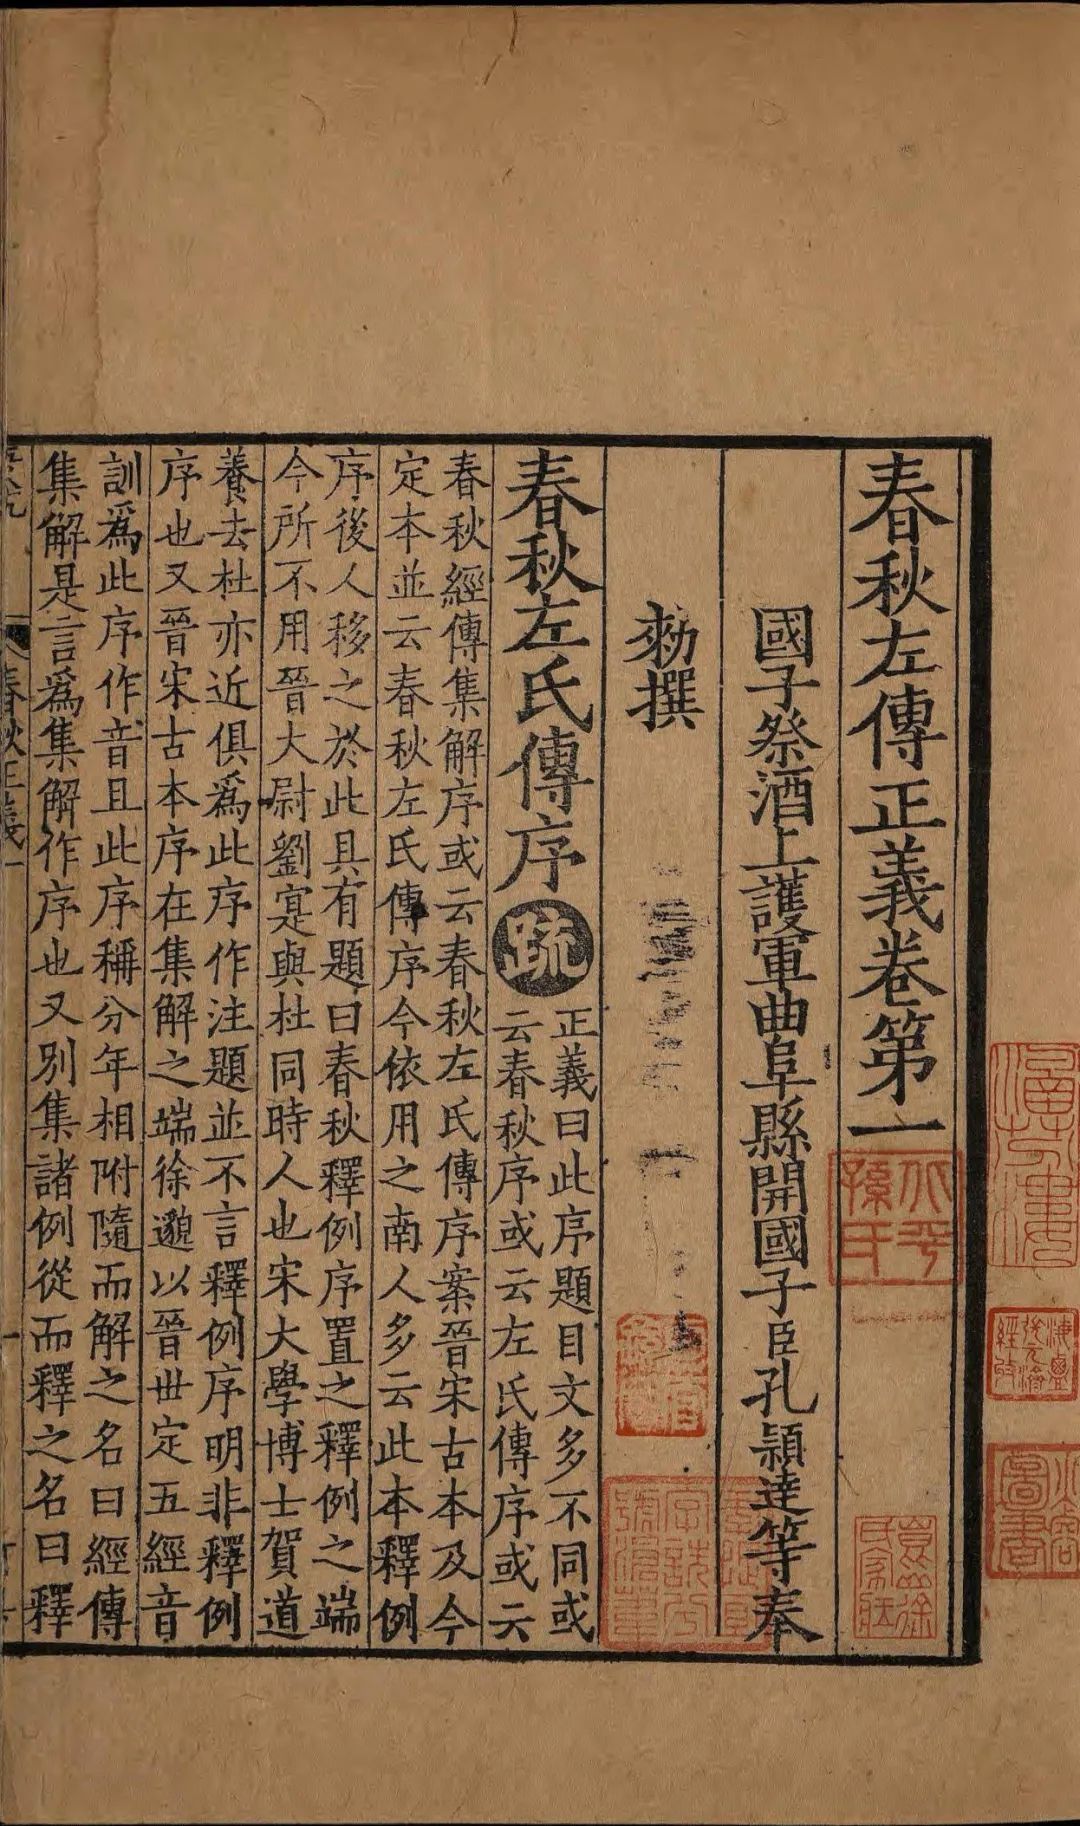 春秋左傳正義卷第一
國子祭酒上護軍曲阜縣開國子臣孔穎達等奉
勑撰
春秋左氏傳序
疏
正義曰此序題目文多不同或
云春秋序或云左氏傳序或云
春秋經傳集解序或云春秋左氏傳序案晉宋古本及今
定本並云春秋左氏傳序今依用之南人多云此本釋例
序後人移之於此具有題曰春秋釋例序置之釋例之端
今所不用晉大尉劉寔與杜同時人也宋大學博士賀道
養去杜亦近俱爲此序作注題並不言釋例序明非釋例
序也又晉宋古本序在集解之端徐邈以晉世定五經音
訓爲此序作音且此序稱分年相附隨而解之名曰經傳
集解是言爲集解作序也又別集諸例從而釋之名曰釋
春秋正義一
孫氏
圖書